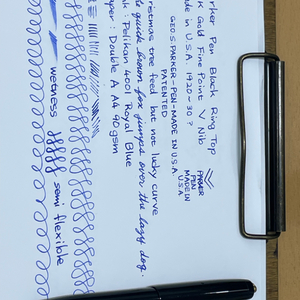 rker Pen Black Ring Top
K Gold Fine Point V Nib
ade in U.S.A. 1920-30 ?
GEO.S. PARKER-PEN-MADE IN U.S.A
PATENTED
PARKER
PEN
MADE IN
U.S.A
ristmas tree feed but not lucky curve
quick brown fox jumps over the lazy dog.
k : Pelikan 4001 Royal Blue
per : Double A A4 90gsm
wetness semi flexible